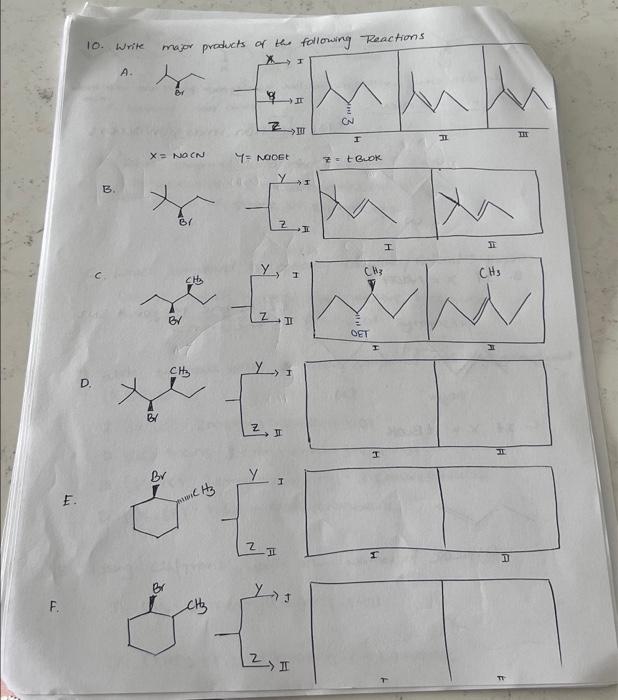 10. Write major products of the following Reactions
A.
Br
X I
Y II
Z III
CN
I II III
X = NaCN Y = NaOEt Z = tBuOK
B.
Br
Y I
Z II
I II
C.
CH3
Br
Y I
Z II
CH3
OET
CH3
I II
D.
CH3
Br
Y I
Z II
I II
E.
Br
CH3
Y I
Z II
I II
F.
Br
CH3
Y I
Z II
I II